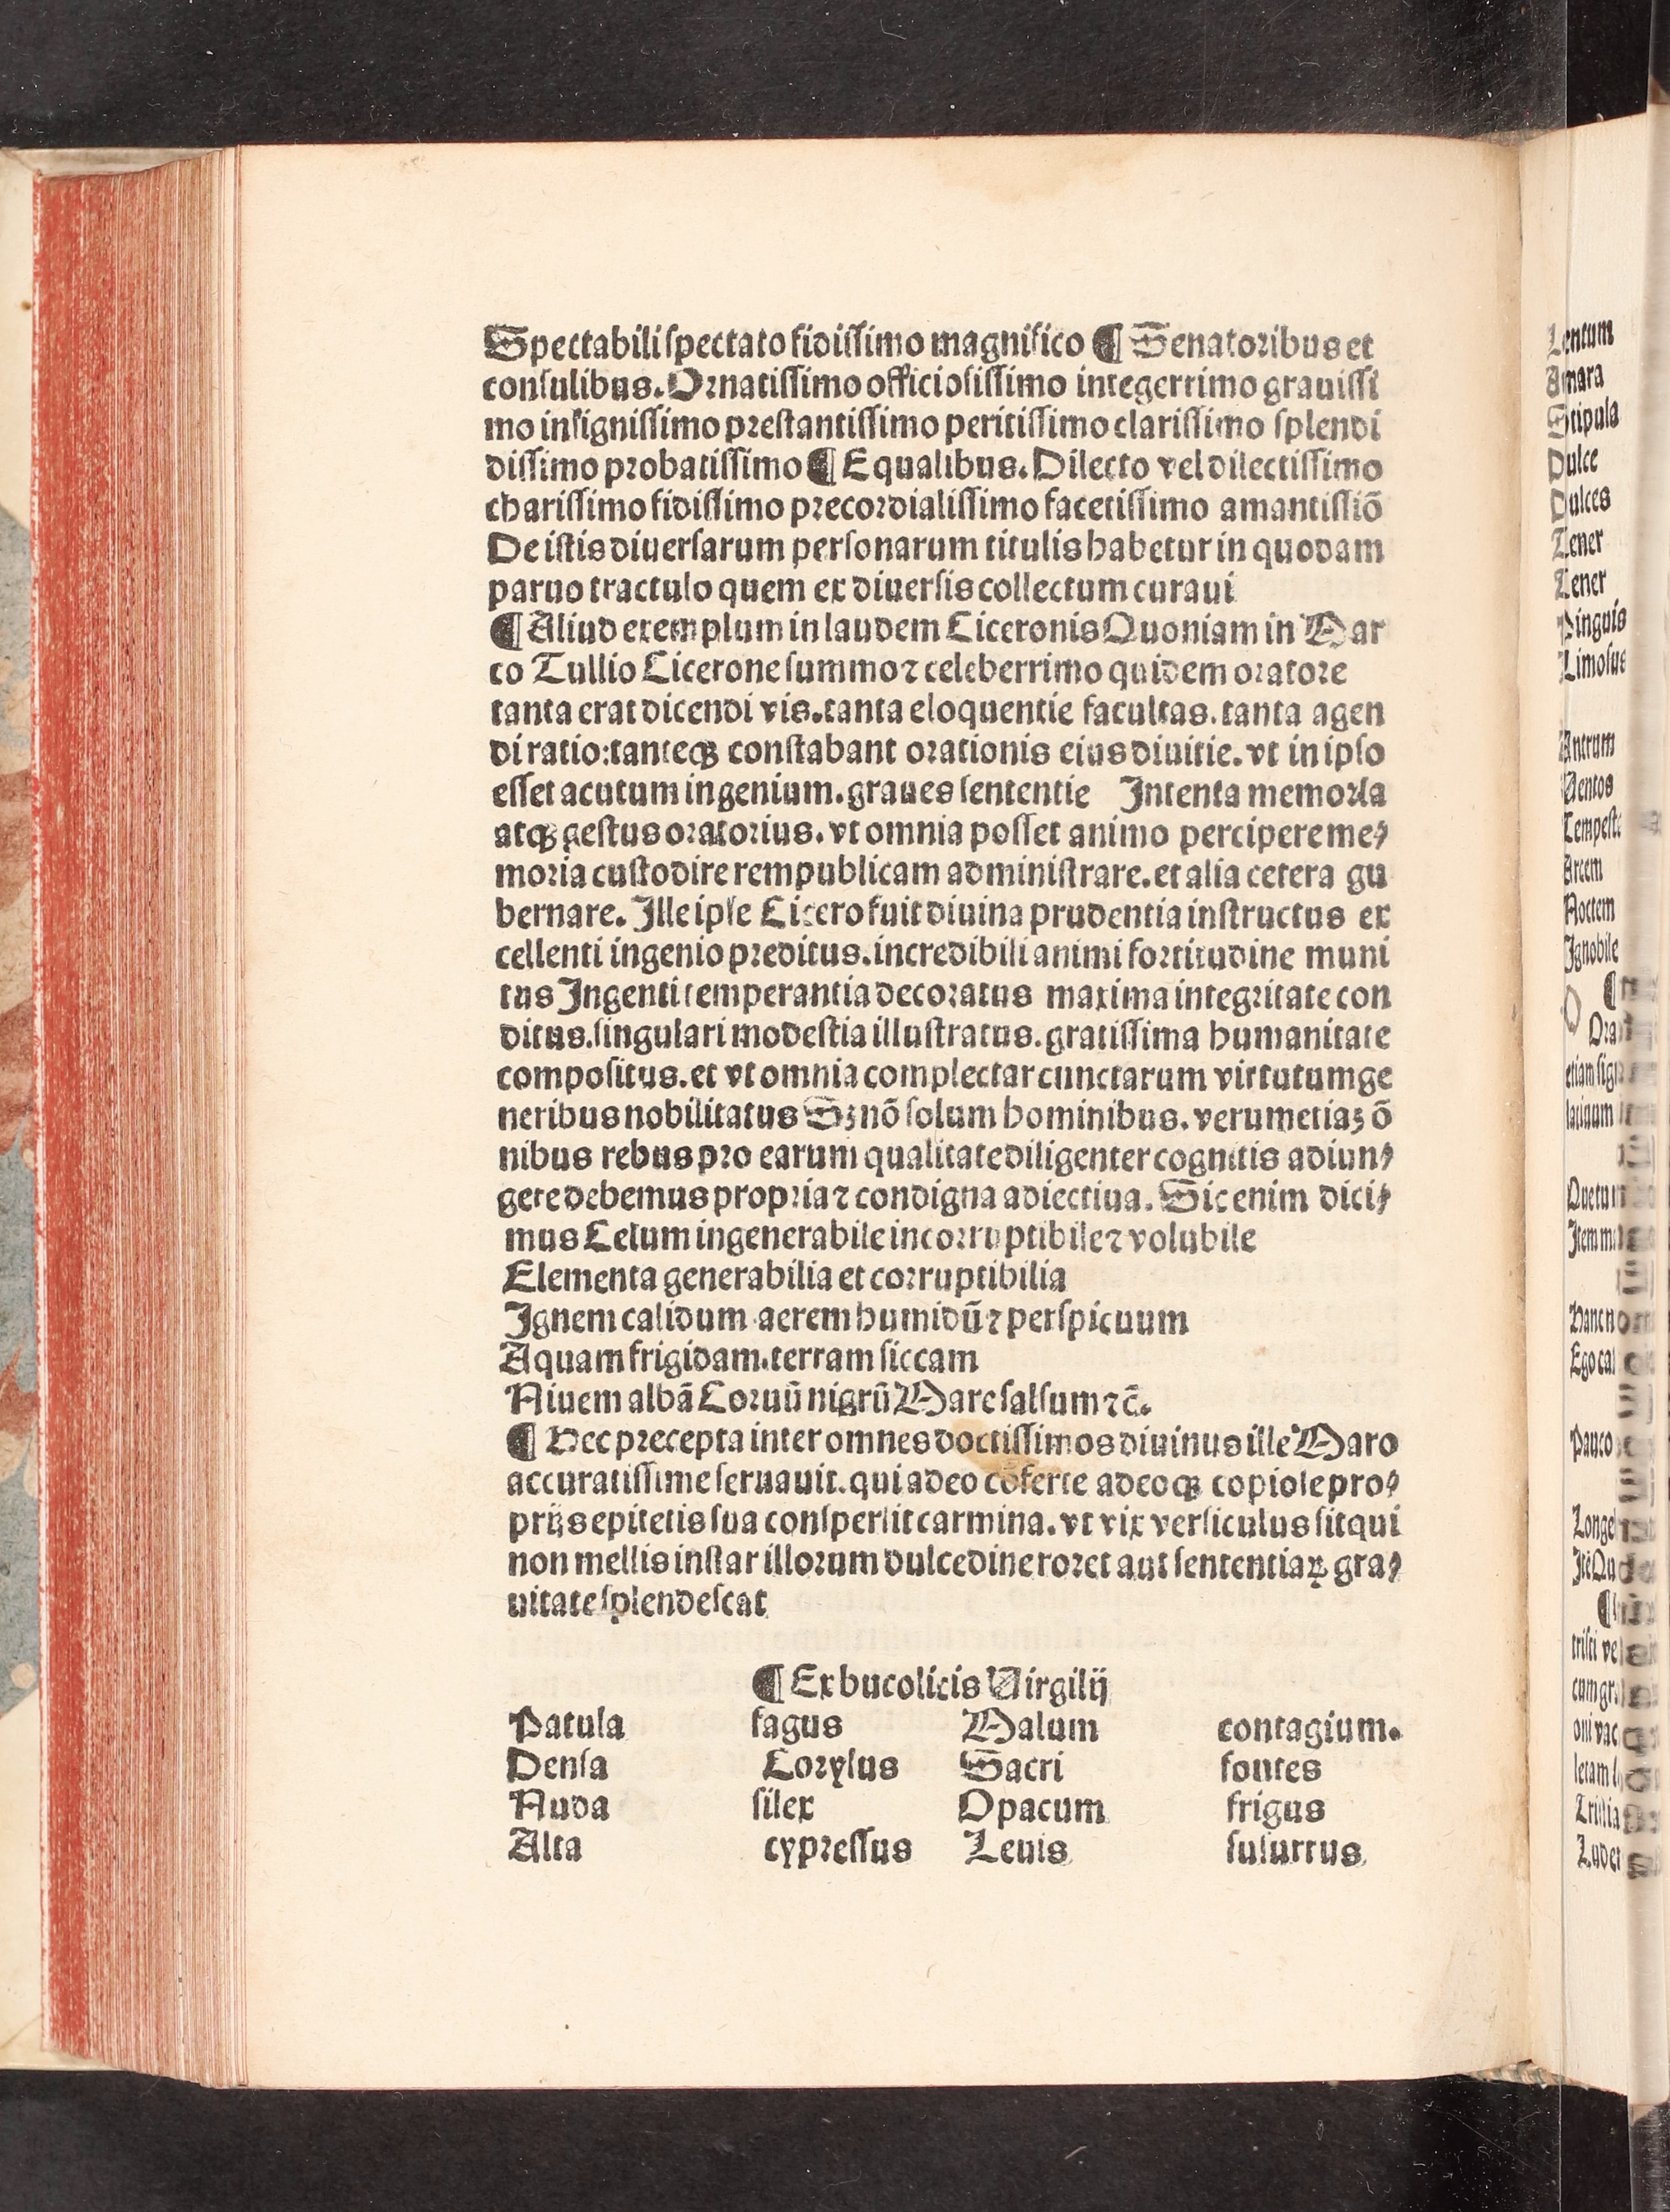 Spectabili spectato fidissimo magnifico ¶ Senatoribus et
consulibus. Ornatissimo officiosissimo integerrimo grauissi
mo insignissimo prestantissimo peritissimo clarissimo splendi
dissimo probatissimo ¶ Equalibus. Dilecto vel dilectissimo
charissimo fidissimo precordialissimo facetissimo amantissiō
De istis diuersarum personarum titulis habetur in quodam
paruo tractulo quem ex diuersis collectum curaui
¶ Aliud exemplum in laudem Ciceronis Quoniam in Mar
co Tullio Cicerone summo ⁊ celeberrimo quidem oratore
tanta erat dicendi vis. tanta eloquentie facultas. tanta agen
di ratio: tanteqꝫ constabant orationis eius diuitie. vt in ipso
esset acutum ingenium. graues sententie Intenta memoria
atqꝫ gestus oratorius. vt omnia posset animo percipere me⸗
moria custodire rempublicam administrare. et alia cetera gu
bernare. Ille ipse Cicero fuit diuina prudentia instructus ex
cellenti ingenio preditus. incredibili animi fortitudine muni
tus Ingenti temperantia decoratus maxima integritate con
ditus. singulari modestia illustratus. gratissima humanitate
compositus. et vt omnia complectar cunctarum virtutum ge
neribus nobilitatus Sꝫ nō solum hominibus. verumetiaꝫ ō
nibus rebus pro earum qualitate diligenter cognitis adiun⸗
gere debemus propria ⁊ condigna adiectiua. Sic enim dici⸗
mus Celum ingenerabile incorruptibile ⁊ volubile
Elementa generabilia et corruptibilia
Ignem calidum aerem humidū ⁊ perspicuum
Aquam frigidam. terram siccam
Niuem albā Coruū nigrū Mare salsum ⁊c̄.
¶ Hec precepta inter omnes doctissimos diuinus ille Maro
accuratissime seruauit. qui adeo cōferte adeoqꝫ copiose pro⸗
prijs epitetis sua conspersit carmina. vt vix versiculus sit qui
non mellis instar illorum dulcedine roret aut sententiaꝝ gra⸗
uitate splendescat
¶ Ex bucolicis Virgilij
Patula fagus Malum contagium.
Densa Corylus Sacri fontes
Nuda silex Opacum frigus
Alta cypressus Leuis susurrus
Lentum
Amara
Stipula
Dulce
Dulces
Tener
Tener
Pinguis
Limosus
Antrum
Arcem
Noctem
Ignobile